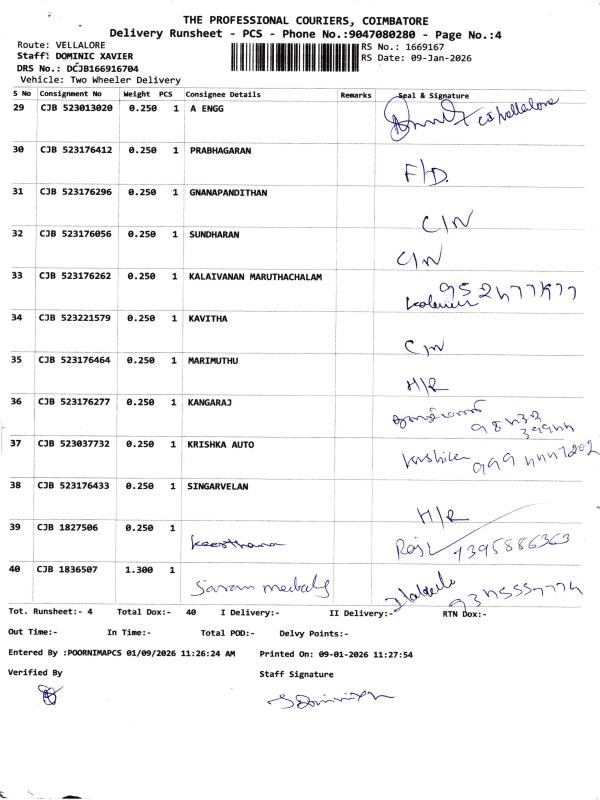 THE PROFESSIONAL COURIERS, COIMBATORE
Delivery Runsheet - PCS - Phone No.:9047080280 - Page No.:4
Route: VELLALORE
RS No.: 1669167
Staff: DOMINIC XAVIER
RS Date: 09-Jan-2026
DRS No.: DCJB166916704
Vehicle: Two Wheeler Delivery
S No Consignment No Weight PCS Consignee Details Remarks Seal & Signature
29 CJB 523013020 0.250 1 A ENGG
30 CJB 523176412 0.250 1 PRABHAGARAN F/D.
31 CJB 523176296 0.250 1 GNANAPANDITHAN C/N
32 CJB 523176056 0.250 1 SUNDHARAN C/N
33 CJB 523176262 0.250 1 KALAIVANAN MARUTHACHALAM
34 CJB 523221579 0.250 1 KAVITHA C/N
35 CJB 523176464 0.250 1 MARIMUTHU H/R
36 CJB 523176277 0.250 1 KANGARAJ
37 CJB 523037732 0.250 1 KRISHKA AUTO
38 CJB 523176433 0.250 1 SINGARVELAN H/R
39 CJB 1827506 0.250 1 Keerthana
40 CJB 1836507 1.300 1 Saran
Tot. Runsheet:- 4 Total Dox:- 40 I Delivery:- II Delivery:- RTN Dox:-
Out Time:- In Time:- Total POD:- Delvy Points:-
Entered By :POORNIMAPCS 01/09/2026 11:26:24 AM Printed On: 09-01-2026 11:27:54
Verified By Staff Signature